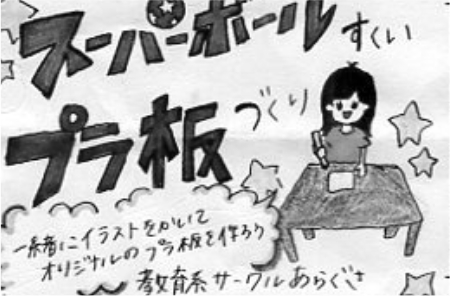 スーパーボールすくい
プラ板づくり
一緒にイラストをかいて
オリジナルのプラ板を作ろう
教育系サークルあらぐさ